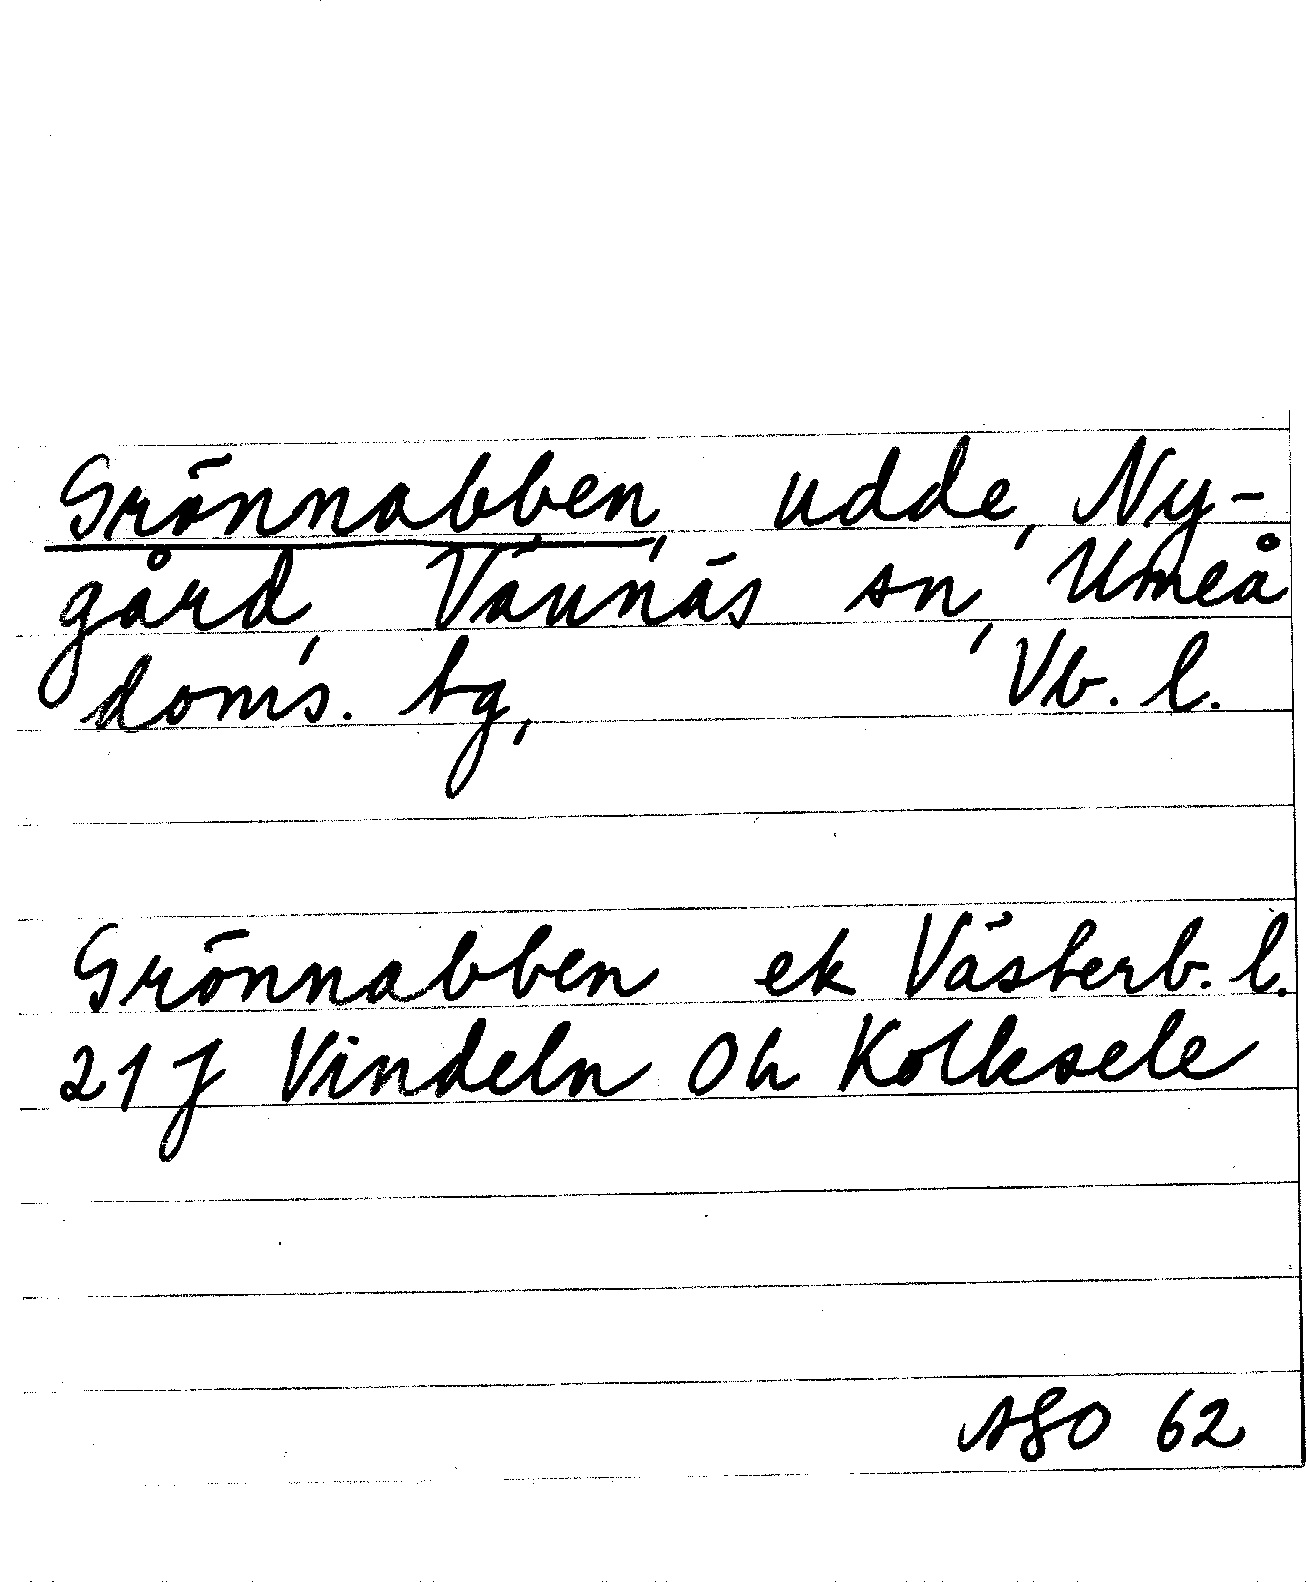 Grönnabben, udde, Ny-
gård, Vännäs sn, Umeå
doms. tg, Vb. l.
Grönnabben ek Västerb. l.
21 J Vindeln Oh Kolksele
ASO 62